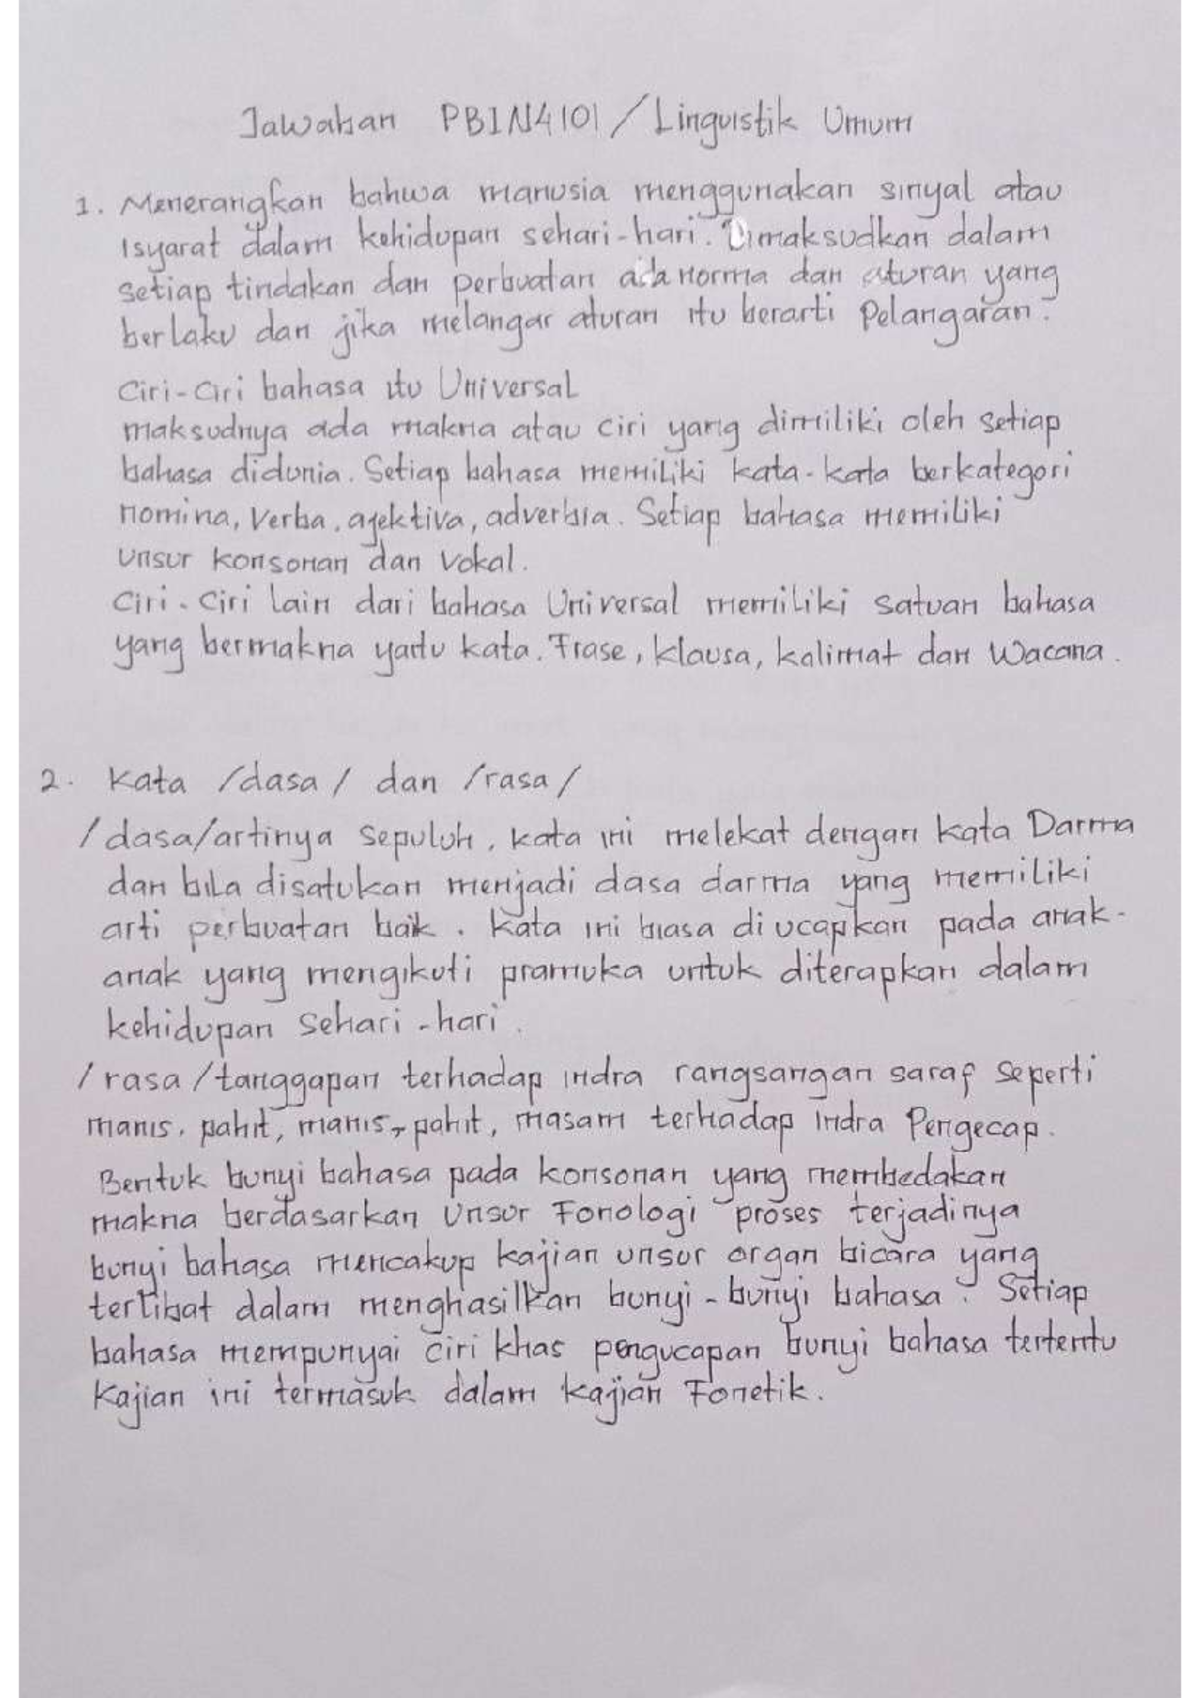 Jawaban PBIN4101/Linguistik Umum
1. Menerangkan bahwa manusia menggunakan sinyal atau
Isyarat dalam kehidupan sehari-hari. Dimaksudkan dalam
setiap tindakan dan perbuatan ada norma dan aturan yang
berlaku dan jika melangar aturan itu berarti Pelangaran.
Ciri-Ciri bahasa itu Universal
maksudnya ada makna atau ciri yang dimiliki oleh setiap
bahasa didunia. Setiap bahasa memiliki kata-kata berkategori
nomina, Verba, ajektiva, adverbia. Setiap bahasa memiliki
unsur konsonan dan Vokal.
Ciri-Ciri lain dari bahasa Universal memiliki satuan bahasa
yang bermakna yaitu kata. Frase, klausa, kalimat dan Wacana.
2. Kata /dasa/ dan /rasa/
/dasa/artinya sepuluh, kata ini melekat dengan kata Darma
dan bila disatukan menjadi dasa darma yang memiliki
arti perbuatan baik. Kata ini biasa di ucapkan pada anak-
anak yang mengikuti pramuka untuk diterapkan dalam
kehidupan sehari-hari.
/rasa/tanggapan terhadap indra rangsangan saraf seperti
manis, pahit, manis, pahit, masam terhadap Indra Pengecap.
Bentuk bunyi bahasa pada konsonan yang membedakan
makna berdasarkan Unsur Fonologi proses terjadinya
bunyi bahasa mencakup kajian unsur organ bicara yang
terlibat dalam menghasilkan bunyi-bunyi bahasa. Setiap
bahasa mempunyai ciri khas pengucapan bunyi bahasa tertentu
Kajian ini termasuk dalam kajian Fonetik.